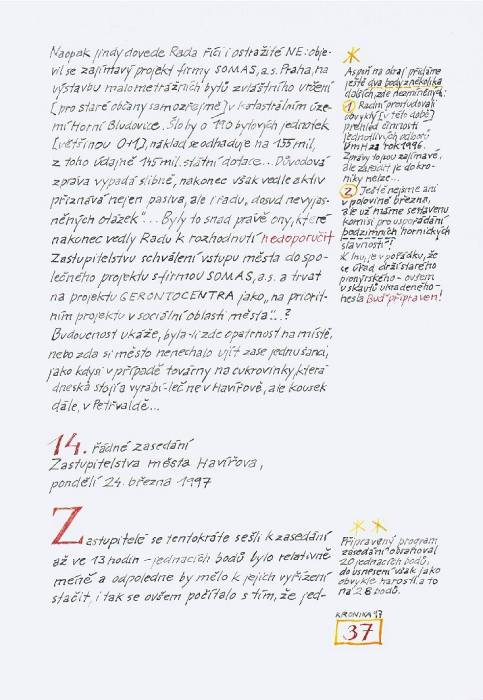 Naopak jindy dovede Rada říci i ostražité NE: obje-
vil se zajímavý projekt firmy SOMAS, a.s. Praha, na
výstavbu malometrážních bytů zvláštního určení
[pro staré občany samozřejmě] v katastrálním úze-
mí Horní Bludovice. Šlo by o 110 bytových jednotek
[většinou 0+1], náklad se odhaduje na 155 mil,
z toho údajně 145 mil. státní dotace... Důvodová
zpráva vypadá slibně, nakonec však vedle aktiv
přiznává nejen pasiva, ale i řadu „dosud nevyjas-
něných otázek"... Byly to snad právě ony, které
nakonec vedly Radu k rozhodnutí nedoporučit
Zastupitelstvu schválení vstupu města do spo-
lečného projektu s firmou SOMAS, a.s. a trvat
na projektu GERONTOCENTRA jako „na priorit-
ním projektu v sociální oblasti města"...?
Budoucnost ukáže, byla-li zde opatrnost na místě,
nebo zda si město nenechalo ujít zase jednu šanci,
jako kdysi v případě továrny na cukrovinky, která
dneska stojí a vyrábí - leč ne v Havířově, ale kousek
dále, v Petřvaldě...
14. řádné zasedání
Zastupitelstva města Havířova,
pondělí 24. března 1997
Zastupitelé se tentokráte sešli k zasedání
až ve 13 hodin - jednacích bodů bylo relativně
méně a odpoledne by mělo k jejich vyřízení
stačit, i tak se ovšem počítalo s tím, že jed-
*
Aspoň na okraj přidáme
ještě dva body z několika
dalších, zde nezmíněných:
1 Radní prostudovali
obvyklý [v této době]
přehled činnosti
jednotlivých odborů
ÚMH za rok 1996.
Zprávy to jsou zajímavé,
ale zařadit je do kro-
niky nelze...
2 Ještě nejsme ani
v polovině března,
ale už máme sestavenu
komisi pro uspořádání
podzimních hornických
slavností!
K hnu, je v pořádku, že
se úřad drží starého
pionýrského - ovšem
u skautů ukradeného -
hesla Buď připraven!
* *
Připravený program
zasedání obsahoval
20 jednacích bodů,
do usnesení však jako
obvykle narostl, a to
na 28 bodů.
KRONIKA 97
37